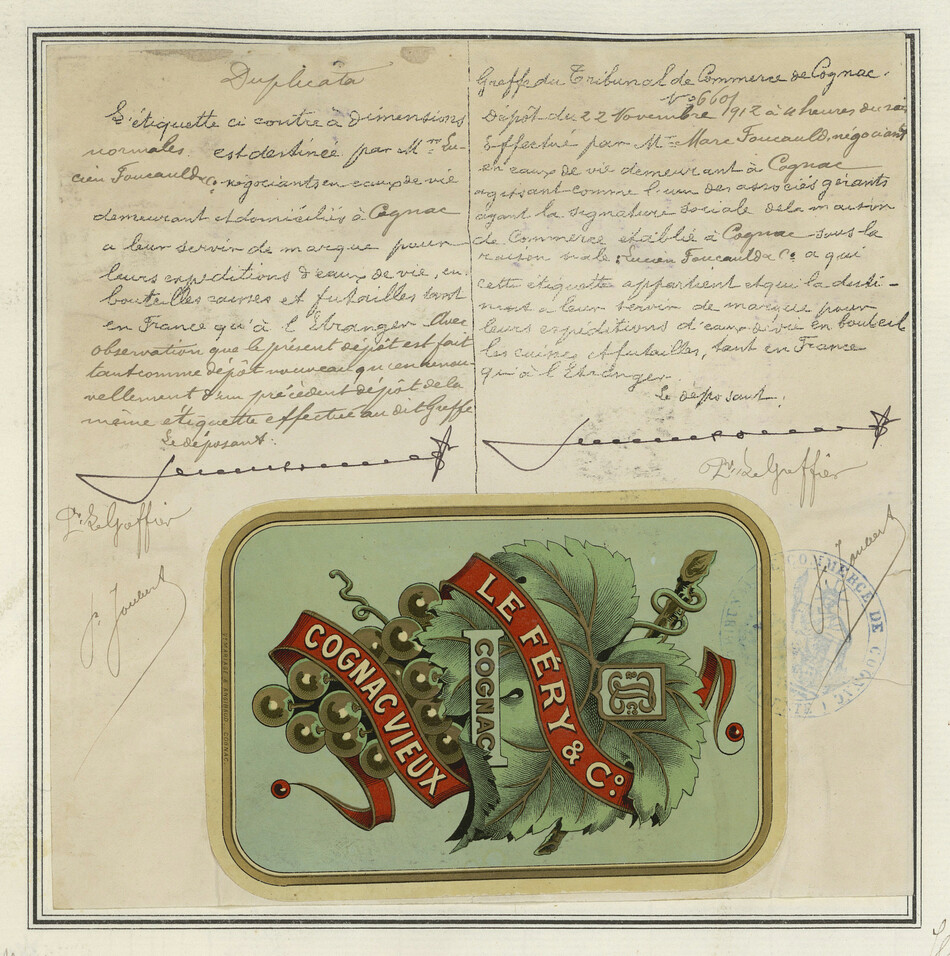 Duplicata
L'étiquette ci contre à dimensions
normales est destinée par Mrs Lu-
cien Foucauld & Co négociants en eaux de vie
demeurant et domiciliés à Cognac
a leur servir de marque pour
leurs expéditions d'eaux de vie, en
bouteilles caisses et futailles tant
en France qu'à l'Etranger. Avec
observation que le présent dépôt est fait
tant comme dépôt nouveau qu'en renou-
vellement d'un précédent dépôt de la
même étiquette effectué au dit Greffe
Le déposant:
Pr. Le Greffier
Greffe du Tribunal de Commerce de Cognac.
No 6601
Dépôt du 22 Novembre 1912 à 4 heures du soir
Effectué par Mr Marc Foucauld, négociant
en eaux de vie demeurant à Cognac
agissant comme l'un des associés gérants
ayant la signature sociale de la maison
de Commerce établie à Cognac sous la
raison sociale: Lucien Foucauld & Co a qui
cette étiquette appartient et qui la desti-
nent à leur servir de marque pour
leurs expéditions d'eaux de vie en bouteil
les caisses et futailles, tant en France
qu'à l'Etranger
Le déposant.
Pr. Le Greffier
LE FÉRY & Co.
COGNAC
COGNAC VIEUX
COMMERCE DE COGNAC